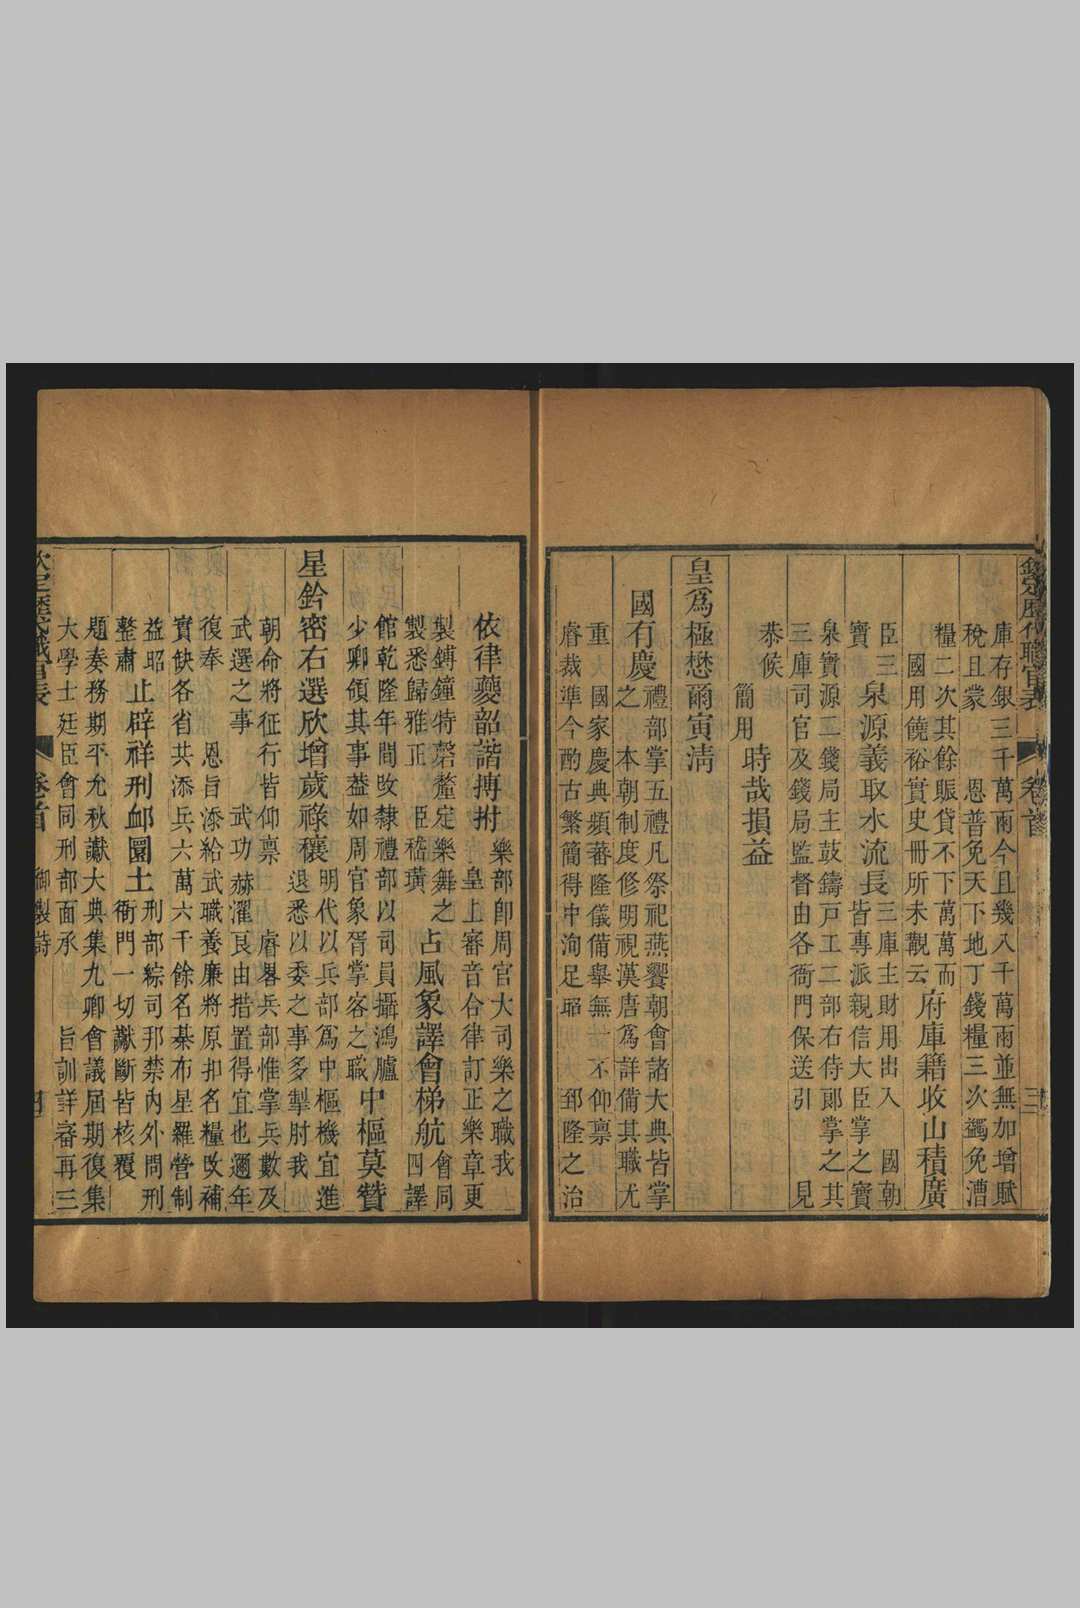 欽定歷代職官表 卷首 三
庫存銀三千萬兩今且幾八千萬兩並無加增賦
稅且蒙 恩普免天下地丁錢糧三次蠲免漕
糧二次其餘賑貸不下萬萬而
國用饒裕實史冊所未覯云 府庫籍收山積廣
臣三 泉源義取水流長 三庫主財用出入 國朝
寶 皆專派親信大臣掌之寶
泉寶源二錢局主鼓鑄戶工二部右侍郎掌之其
三庫司官及錢局監督由各衙門保送引 見
恭候
簡用 時哉損益
皇爲極懋爾寅淸
國有慶 禮部掌五禮凡祭祀燕饗朝會諸大典皆掌
之 本朝制度修明視漢唐爲詳備其職尤
重大 國家慶典頻蕃隆儀備舉無一不仰禀
睿裁準今酌古繁簡得中洵足昭 郅隆之治
依律夔韶諧搏拊 樂部卽周官大司樂之職我
皇上審音合律訂正樂章更
製鎛鐘特磬釐定樂舞之 占風象譯會梯航 會同
製悉歸雅正 臣嵇璜 四譯
館乾隆年間改隸禮部以司員攝鴻臚
少卿領其事葢如周官象胥掌客之職 中樞莫贊
星鈐密右選欣增歲祿穰 明代以兵部爲中樞機宜進
退悉以委之事多掣肘我
朝命將征行皆仰禀 睿畧兵部惟掌兵數及
武選之事 武功赫濯良由措置得宜也邇年
復奉 恩旨添給武職養廉將原扣名糧改補
實缺各省共添兵六萬六千餘名棊布星羅營制
益昭 止辟祥刑邺圜土 刑部綜司邦禁內外問刑
整肅 衙門一切讞斷皆核覆
題奏務期平允秋讞大典集九卿會議屆期復集
大學士廷臣會同刑部面承 旨訓詳審再三
欽定歷代職官表 卷首 御製詩 四